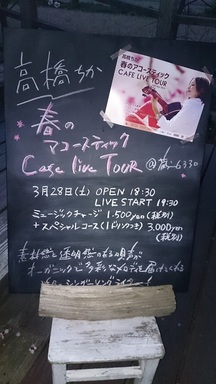 高橋ちか
春の
アコースティック
Cafe live TOUR
3月28日(土) OPEN 18:30
LIVE START 19:30
ミュージックチャージ 1.500yen(税別)
+スペシャルコース(1ドリンクつき) 3.000yen
(税別)
素朴感と透明感のある唄声が
オーガニックで多彩なメロディを届けてくれる
高橋ちか
春のアコースティック
CAFE LIVE TOUR